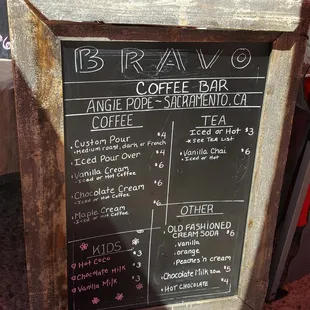 BRAVO
COFFEE BAR
ANGIE POPE - SACRAMENTO, CA
COFFEE
• Custom Pour $4
• Medium roast, dark or French
• Iced Pour Over $4
• Vanilla Cream $6
• Iced or Hot Coffee
• Chocolate Cream $6
• Iced or Hot Coffee
• Maple Cream $6
• Iced or Hot Coffee
KIDS
• Hot Coco $3
• Chocolate Milk $3
• Vanilla Milk $3
TEA
Iced or Hot $3
→ SEE TEA LIST
• Vanilla Chai $6
Iced or Hot
OTHER
OLD FASHIONED
CREAM SODA $6
• Vanilla
• orange
• Peaches 'n cream
• Chocolate Milk $5
• HOT CHOCOLATE $4